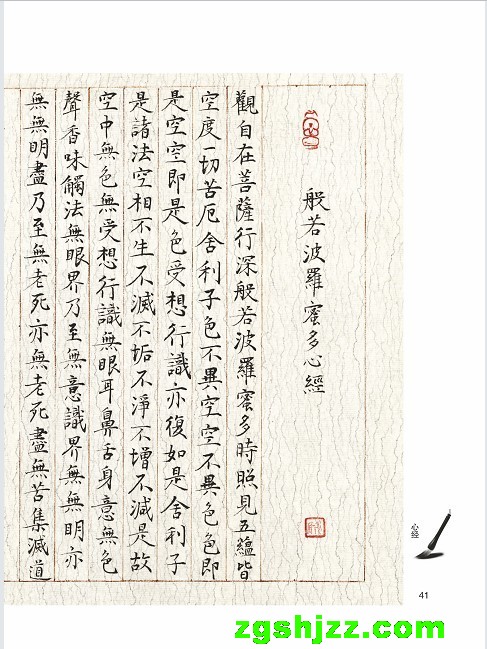 般若波羅蜜多心經
觀自在菩薩行深般若波羅蜜多時照見五蘊皆
空度一切苦厄舍利子色不異空空不異色色即
是空空即是色受想行識亦復如是舍利子
是諸法空相不生不滅不垢不淨不增不減是故
空中無色無受想行識無眼耳鼻舌身意無色
聲香味觸法無眼界乃至無意識界無無明亦
無無明盡乃至無老死亦無老死盡無苦集滅道
心经
41
zgshjzz.com